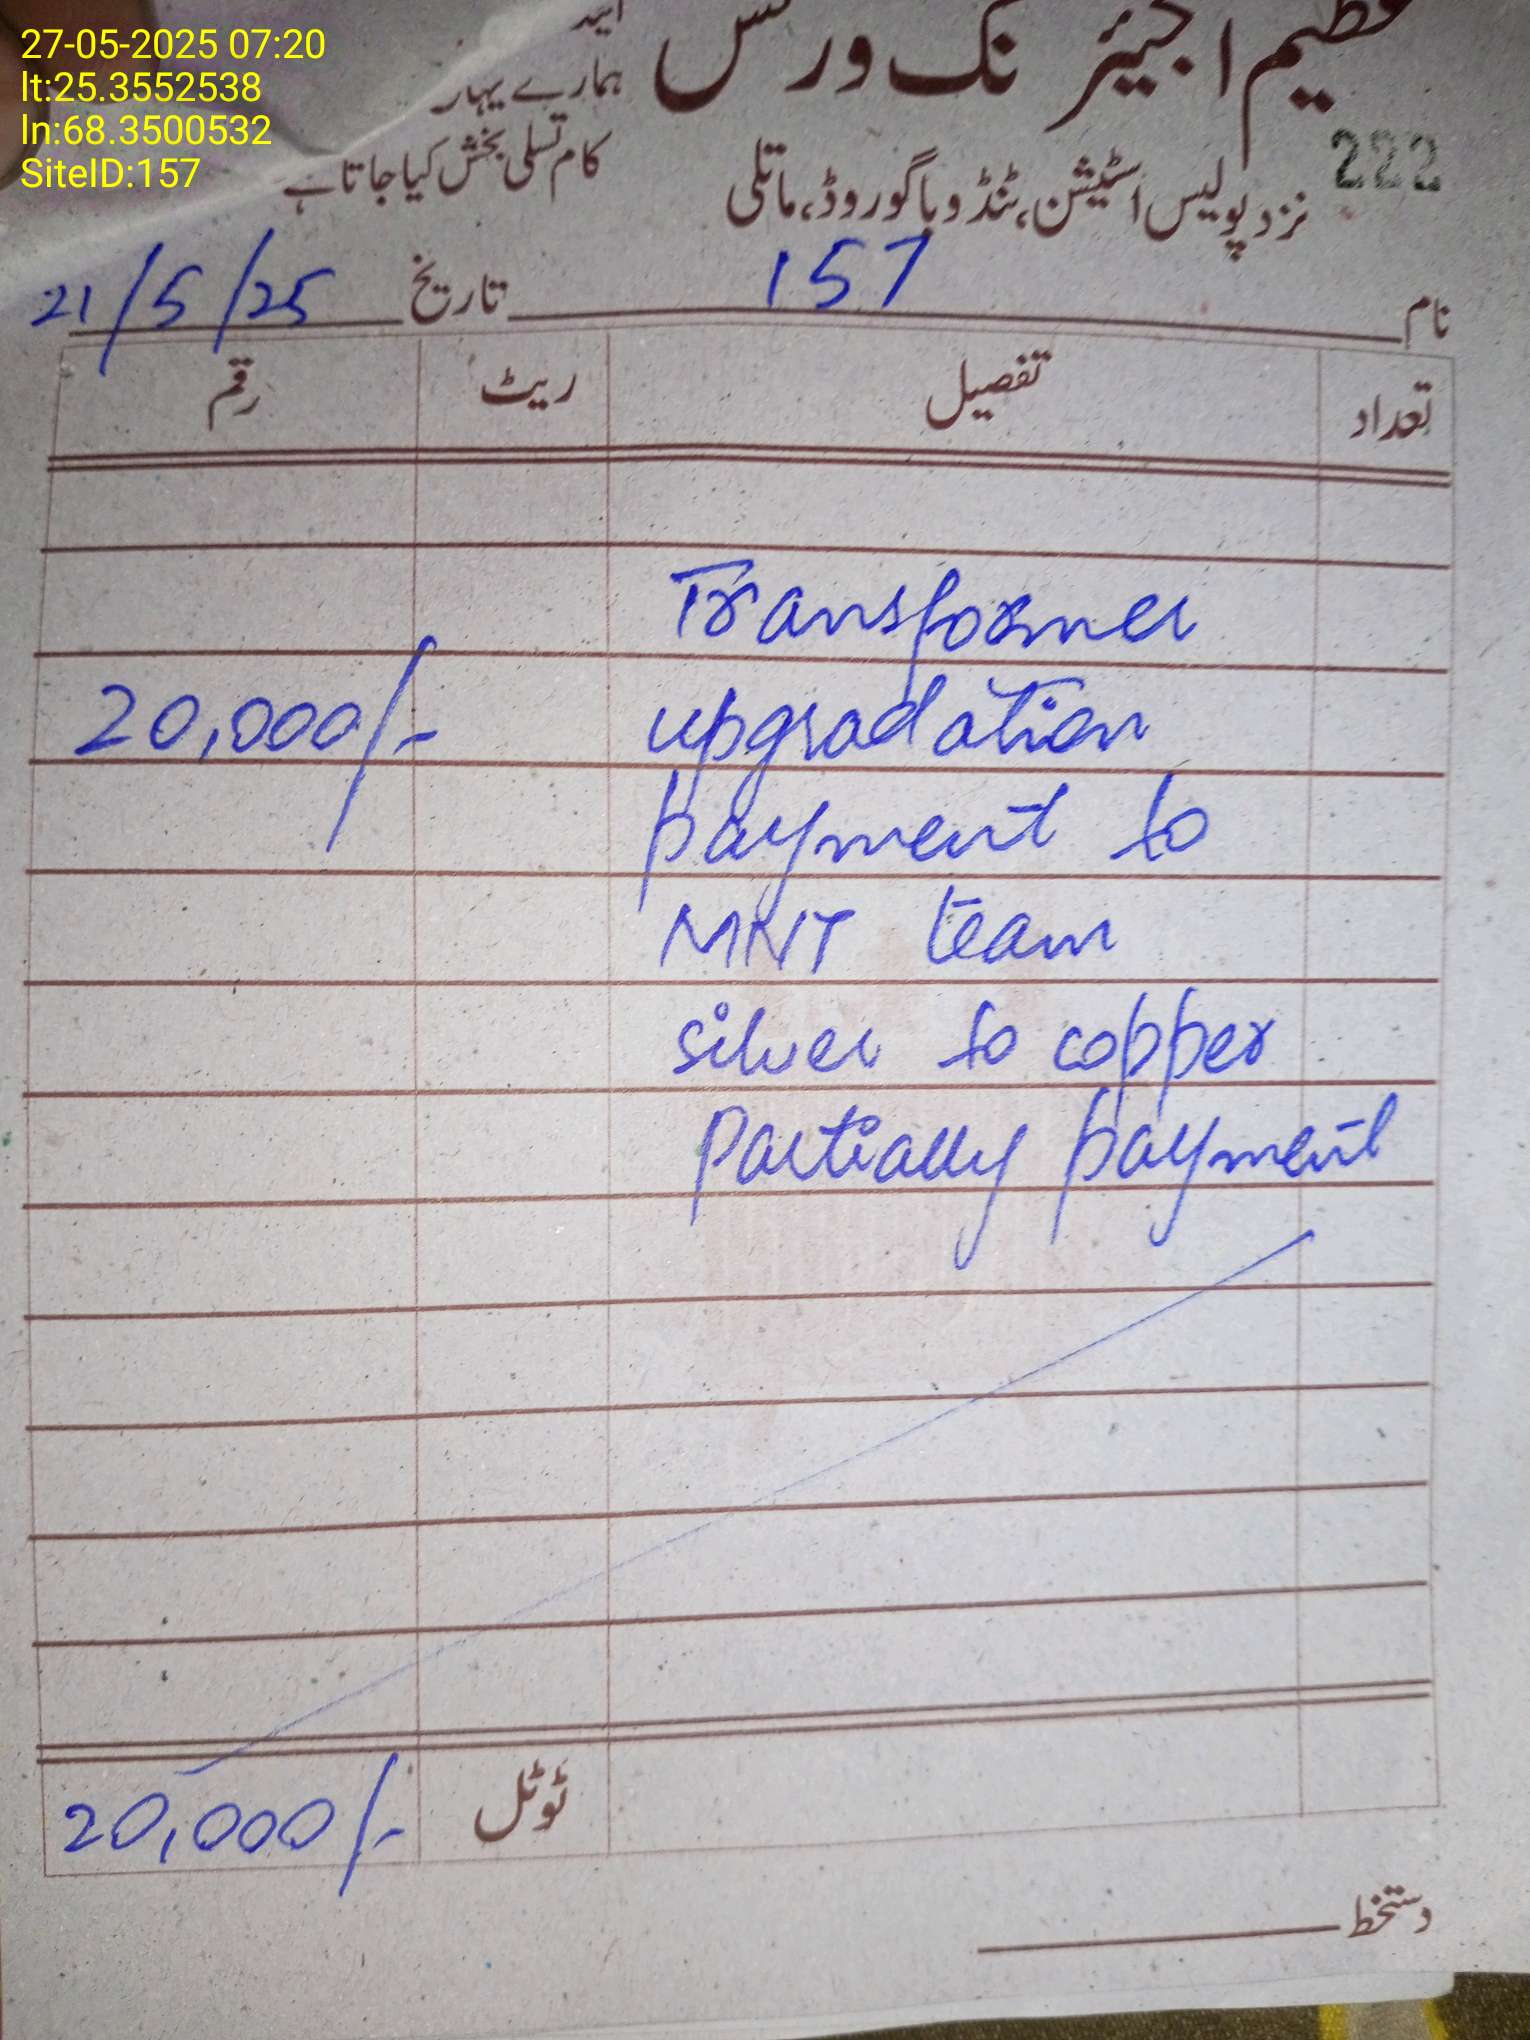 27-05-2025 07:20
lt:25.3552538
ln:68.3500532
SiteID:157
عظیم انجینئرنگ ورکس
ہمارے یہاں
کام تسلی بخش کیا جاتا ہے
222
نزد پولیس اسٹیشن، ٹنڈو باگو روڈ، ماتلی
نام 157 تاریخ 21/5/25
تعداد تفصیل ریٹ رقم
Transformer
upgradation 20,000/-
payment to
MNT team
silver to copper
Partially payment
ٹوٹل 20,000/-
دستخط